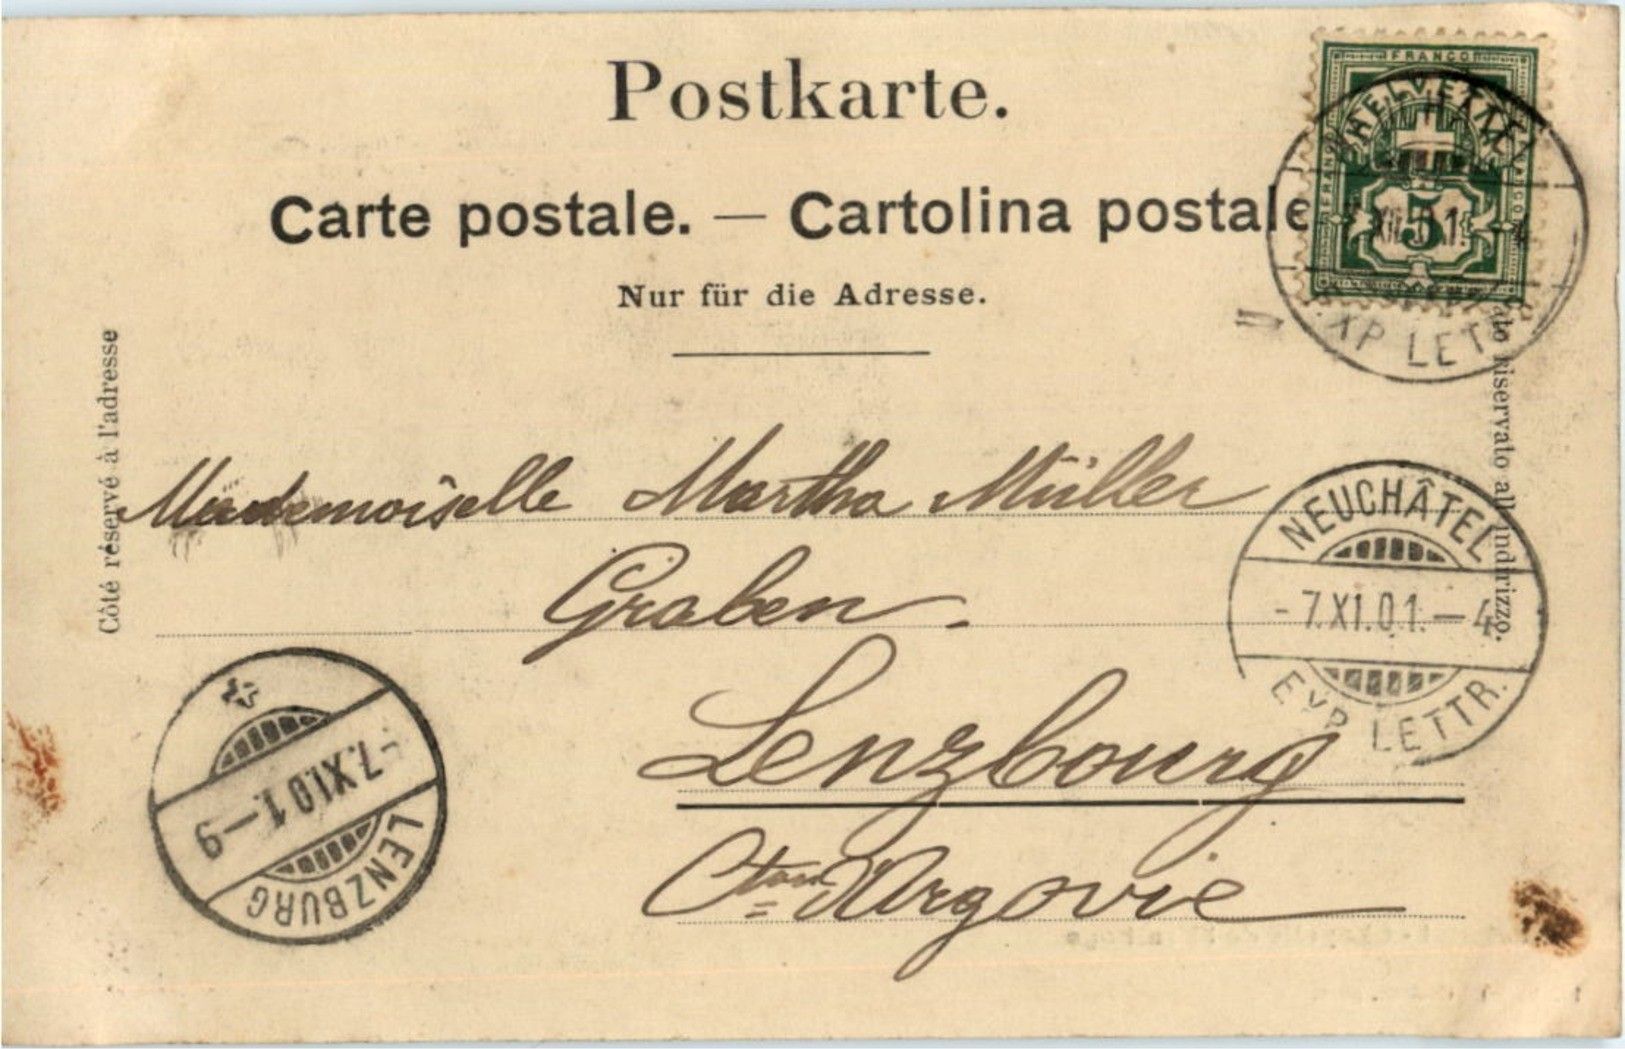 Postkarte.
FRANCO
HELVETIA
FRANCO
FRANCO
5
XI.01.–4
XP LETT
Carte postale. — Cartolina postale
Nur für die Adresse.
Côté réservé à l'adresse
lato riservato all'indirizzo.
Mademoiselle Martha Müller
Graben.
Lenzbourg
Cton Argovie
NEUCHÂTEL
-7.XI.01.—4
EXP. LETTR.
-7.XI.01.—9
LENZBURG